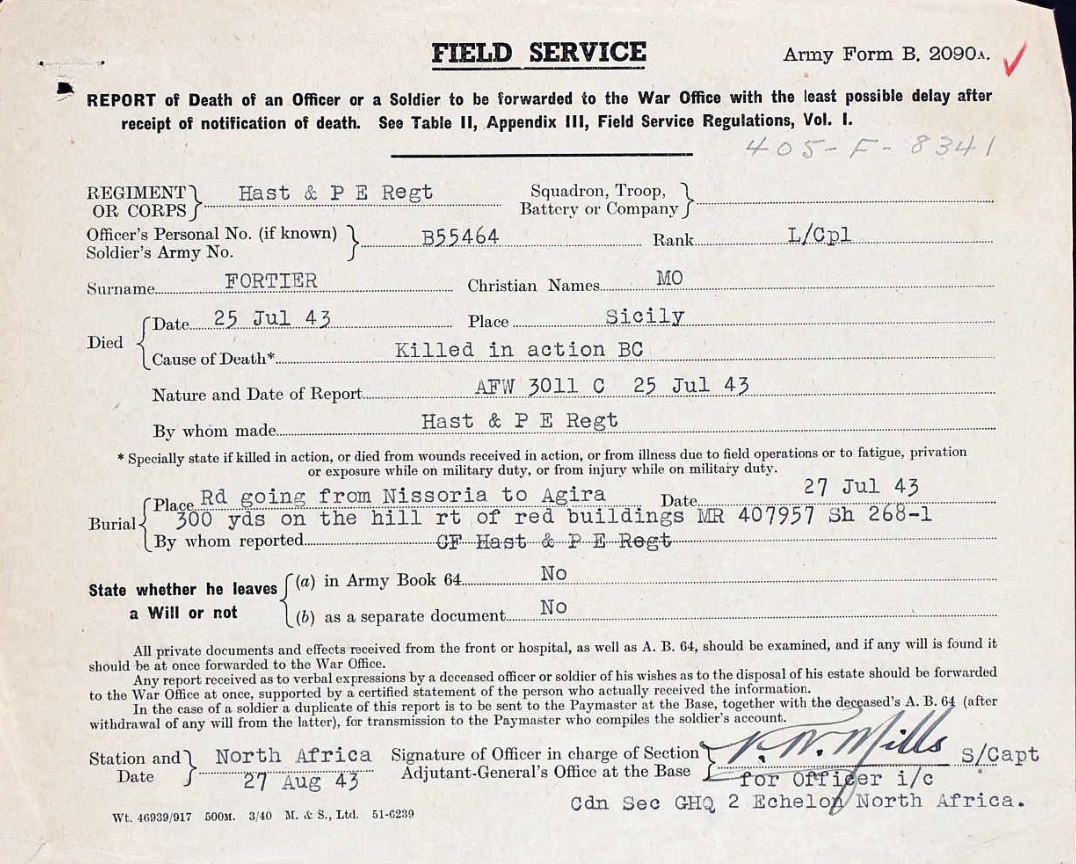 FIELD SERVICE
Army Form B. 2090A.
REPORT of Death of an Officer or a Soldier to be forwarded to the War Office with the least possible delay after
receipt of notification of death. See Table II, Appendix III, Field Service Regulations, Vol. I.
405-F-8341
REGIMENT OR CORPS Hast & P E Regt Squadron, Troop, Battery or Company
Officer's Personal No. (if known) Soldier's Army No. B55464 Rank L/Cpl
Surname FORTIER Christian Names MO
Died Date 25 Jul 43 Place Sicily
Cause of Death* Killed in action BC
Nature and Date of Report AFW 3011 C 25 Jul 43
By whom made Hast & P E Regt
* Specially state if killed in action, or died from wounds received in action, or from illness due to field operations or to fatigue, privation
or exposure while on military duty, or from injury while on military duty.
Burial Place Rd going from Nissoria to Agira Date 27 Jul 43
300 yds on the hill rt of red buildings MR 407957 Sh 268-1
By whom reported CF Hast & P E Regt
State whether he leaves a Will or not (a) in Army Book 64 No
(b) as a separate document No
All private documents and effects received from the front or hospital, as well as A. B. 64, should be examined, and if any will is found it
should be at once forwarded to the War Office.
Any report received as to verbal expressions by a deceased officer or soldier of his wishes as to the disposal of his estate should be forwarded
to the War Office at once, supported by a certified statement of the person who actually received the information.
In the case of a soldier a duplicate of this report is to be sent to the Paymaster at the Base, together with the deceased's A. B. 64 (after
withdrawal of any will from the latter), for transmission to the Paymaster who compiles the soldier's account.
Station and Date North Africa Signature of Officer in charge of Section Mills S/Capt
27 Aug 43 Adjutant-General's Office at the Base for Officer i/c
Cdn Sec GHQ 2 Echelon North Africa.
Wt. 46939/917 500M. 3/40 M. & S., Ltd. 51-6239